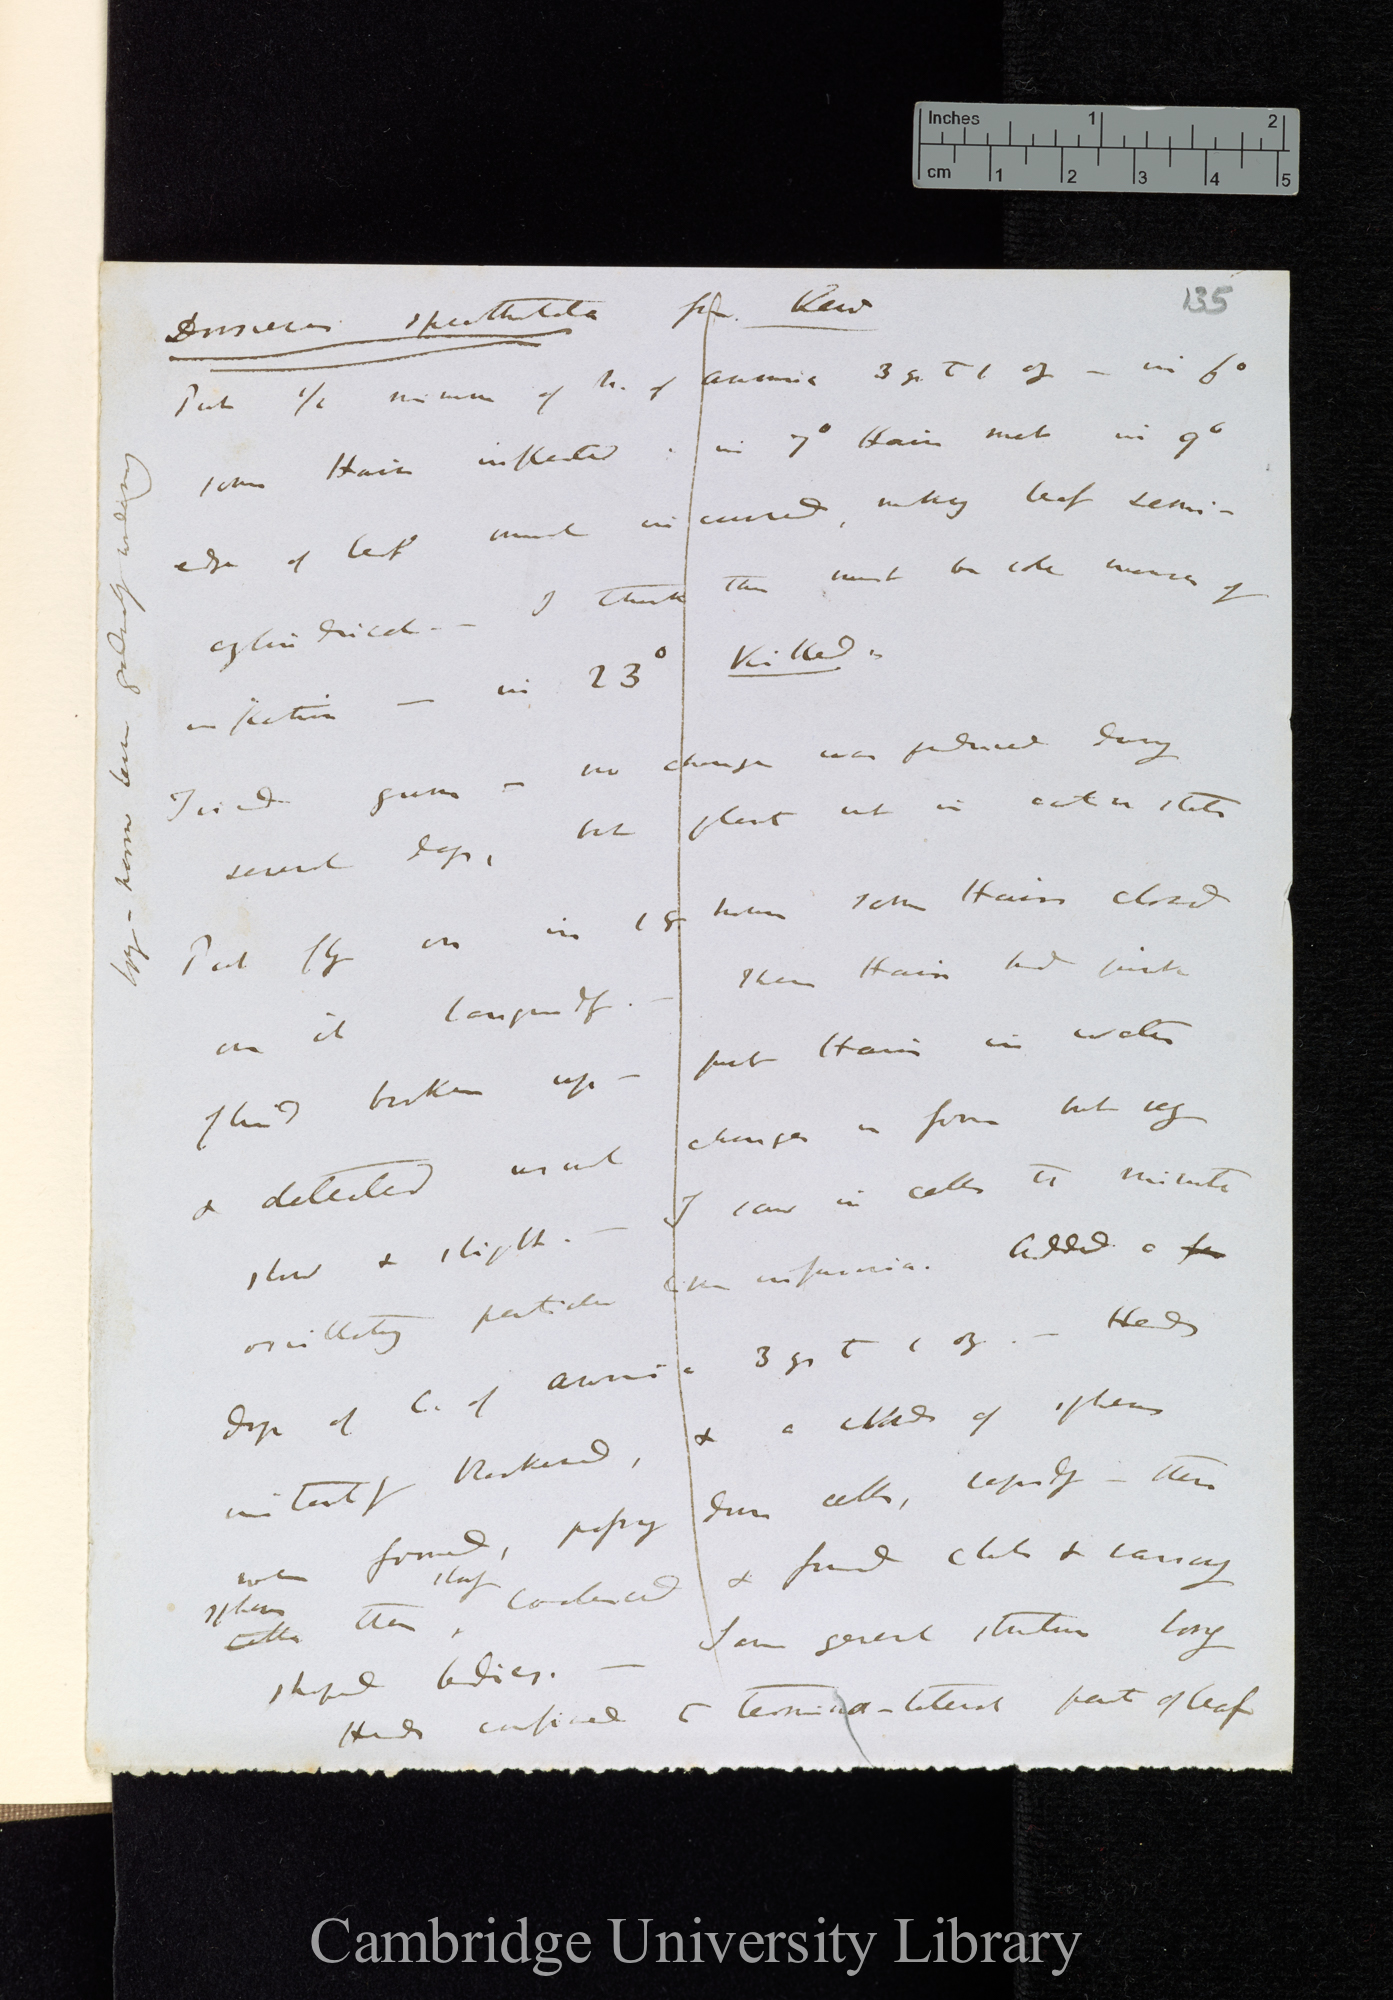 135
Drosera spathulata fr. Kew
Put 1/2 minim of N. of ammonia 3 gr to 1 oz — in 6°
some Hairs inflected : in 7° Hairs met in 9°
edge of leaf much incurved, making leaf semi-
cylindrical — I think this must be sole means of
inflection — in 23° Killed.
Tried gum — no change was produced during
several days, but plant not in active state
Put fly on in 18 hours some Hairs closed
on it languidly. — These Hairs had pink
fluid broken up — put Hairs in water
& detected usual changes in form but very
slow & slight. — I saw in cells the minute
oscillatory particles like infusoria. Added a few
drops of C. of ammonia 3 gr to 1 oz. — Heads
instantly blackened, & a cloud of spheres
were formed, passing down cells, rapidly — these
spheres cells then slowly, coalesced & formed clubs & variously
shaped bodies. — Same general structure long
Heads confined to terminal-lateral part of leaf
Inches 1 2
cm 1 2 3 4 5
Cambridge University Library